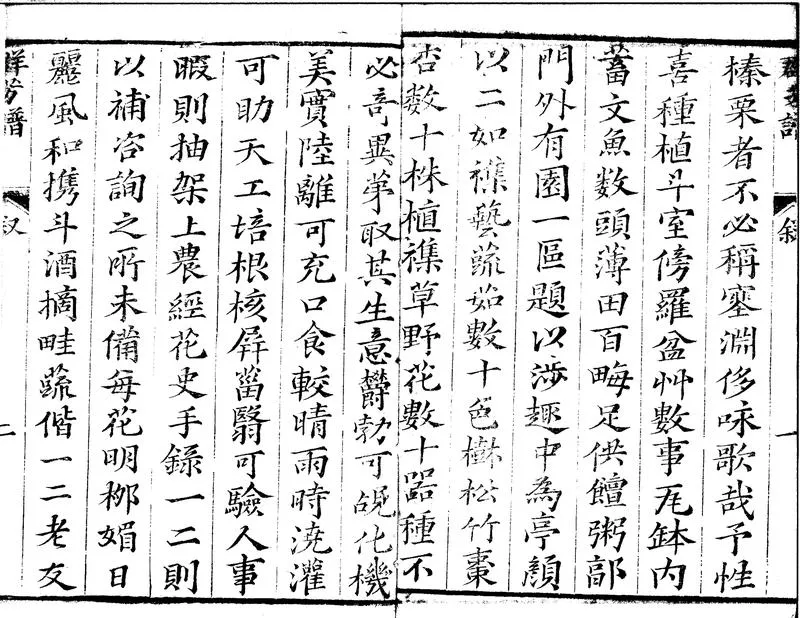 群芳譜
敘
一
榛栗者不必稱塞淵侈咏歌哉予性
喜種植斗室傍羅盆艸數事瓦鉢内
蓄文魚数頭薄田百畮足供饘粥郭
門外有園一區題以涉趣中為亭顏
以二如襍藝蔬茹數十色樹松竹棗
杏数十株植襍草野花數十器種不
必竒異苐取其生意欝勃可覘化機
美實陸離可充口食較晴雨時澆灌
可助天工培根核屏菑翳可驗人事
暇則抽架上農經花史手錄一二則
以補咨詢之所未備每花明栁媚日
麗風和携斗酒摘畦蔬偕一二老友
群芳譜
叙
二